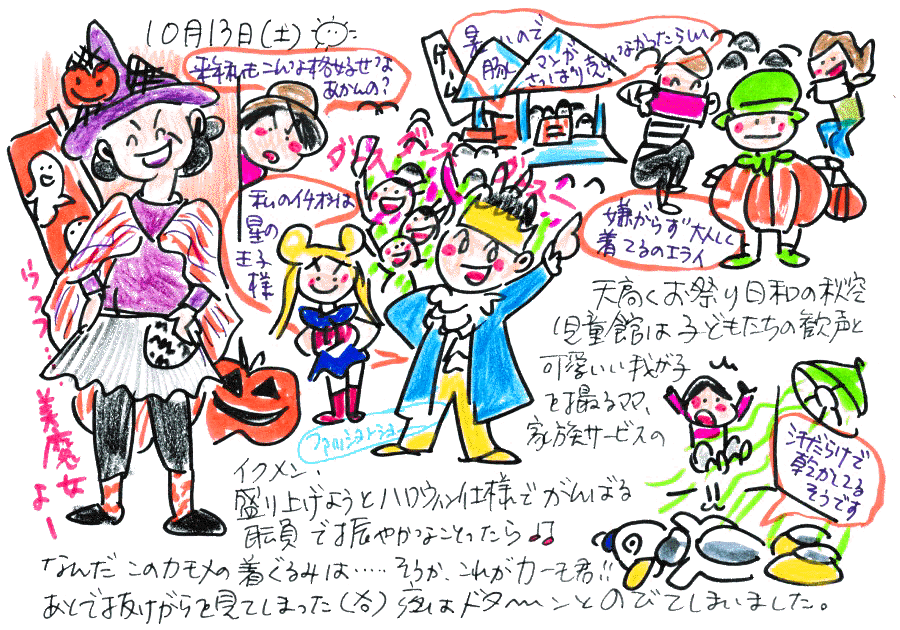 10月13日(土)
平和もこんな格好せな
あかんの?
ゲーム
暑いので
豚マンが
さっぱり売れなかったらしい
ダンス
ダンス
私のイチオシは
星の
王子
様
嫌がらず大人しく
着てるのエライ
うフフ…美魔女よー
ファッションショー
天高くお祭り日和の秋空
児童館は子どもたちの歓声と
可愛いい我が子
を撮るママ、
家族サービスの
イクメン
盛り上げようとハロウィン仕様でがんばる
職員で賑やかなことったら♫
汗だらけで
乾かしてる
そうです
なんだこのカモメの着ぐるみは……そうか、これがカーモ君!!
あとで抜けがらを見てしまった(笑)
はドターンとのびてしまいました。